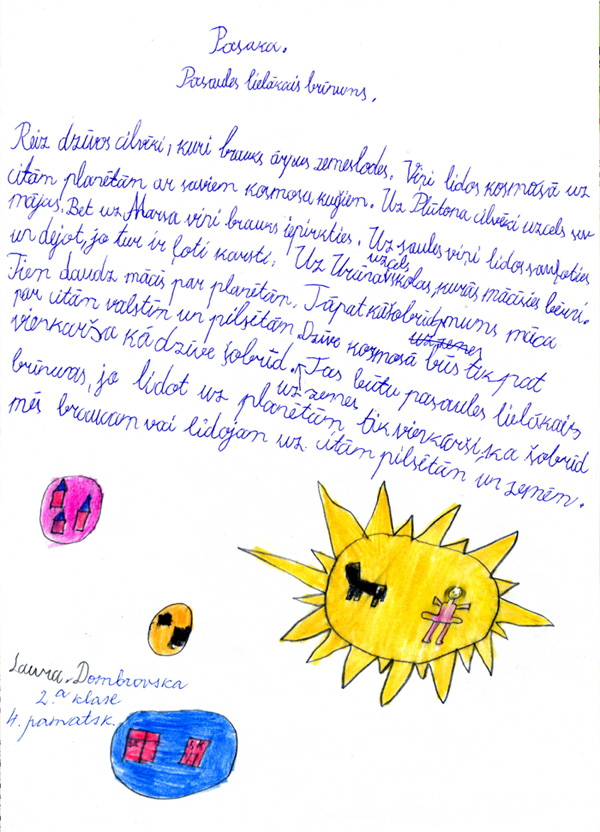 Pasaka.
Pasaules lielākais brīnums.
Reiz dzīvos cilvēki, kuri brauks ārpus zemeslodes. Viņi lidos kosmosā uz
citām planētām ar saviem kosmosa kuģiem. Uz Plūtona cilvēki uzcels sev
mājas. Bet uz Marsa viņi brauks iepirkties. Uz saules viņi lidos sauļoties
un dējot, jo tur ir ļoti karsti. Uz Urāna uzcels skolas, kurās mācīsies bērni.
Tiem daudz mācīs par planētām. Tāpat kā šobrīd mums māca
par citām valstīm un pilsētām. Dzīve kosmosā būs tik pat
vienkārša kā dzīve šobrīd uz zemes. Tas būtu pasaules lielākais
brīnums, jo lidot uz planētām tik vienkārši, ka šobrīd
mēs braucam vai lidojam uz citām pilsētām un zemēm.
Laura Dombrovska
2.a klase
4. pamatsk.
SK